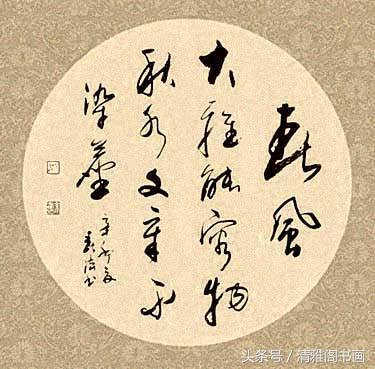 春風
大雅能容物
秋水文章不
染塵
头条号 / 清雅阁书画